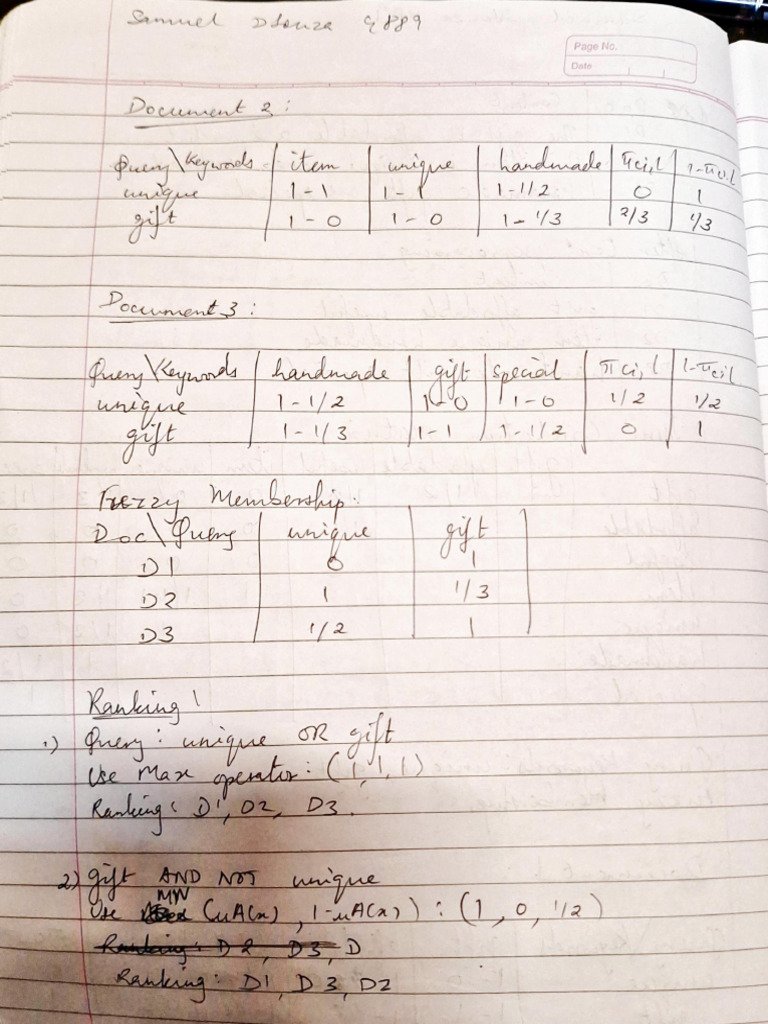 Samuel DSouza 9889
Page No.
Date
Document 2:
Query\Keywords | item | unique | handmade | πci,l | 1-πci,l
unique | 1-1 | 1-1 | 1-1/2 | 0 | 1
gift | 1-0 | 1-0 | 1-1/3 | 2/3 | 1/3
Document 3:
Query\Keywords | handmade | gift | special | πci,l | 1-πci,l
unique | 1-1/2 | 1-0 | 1-0 | 1/2 | 1/2
gift | 1-1/3 | 1-1 | 1-1/2 | 0 | 1
Fuzzy Membership:
Doc\Query | unique | gift
D1 | 0 | 1
D2 | 1 | 1/3
D3 | 1/2 | 1
Ranking!
1) Query: unique OR gift
Use Max operator: (1,1,1)
Ranking: D1, D2, D3.
2) gift AND NOT unique
MIN
Use (uA(x), 1-uA(x)): (1, 0, 1/2)
Ranking: D2, D3, D
Ranking: D1, D3, D2